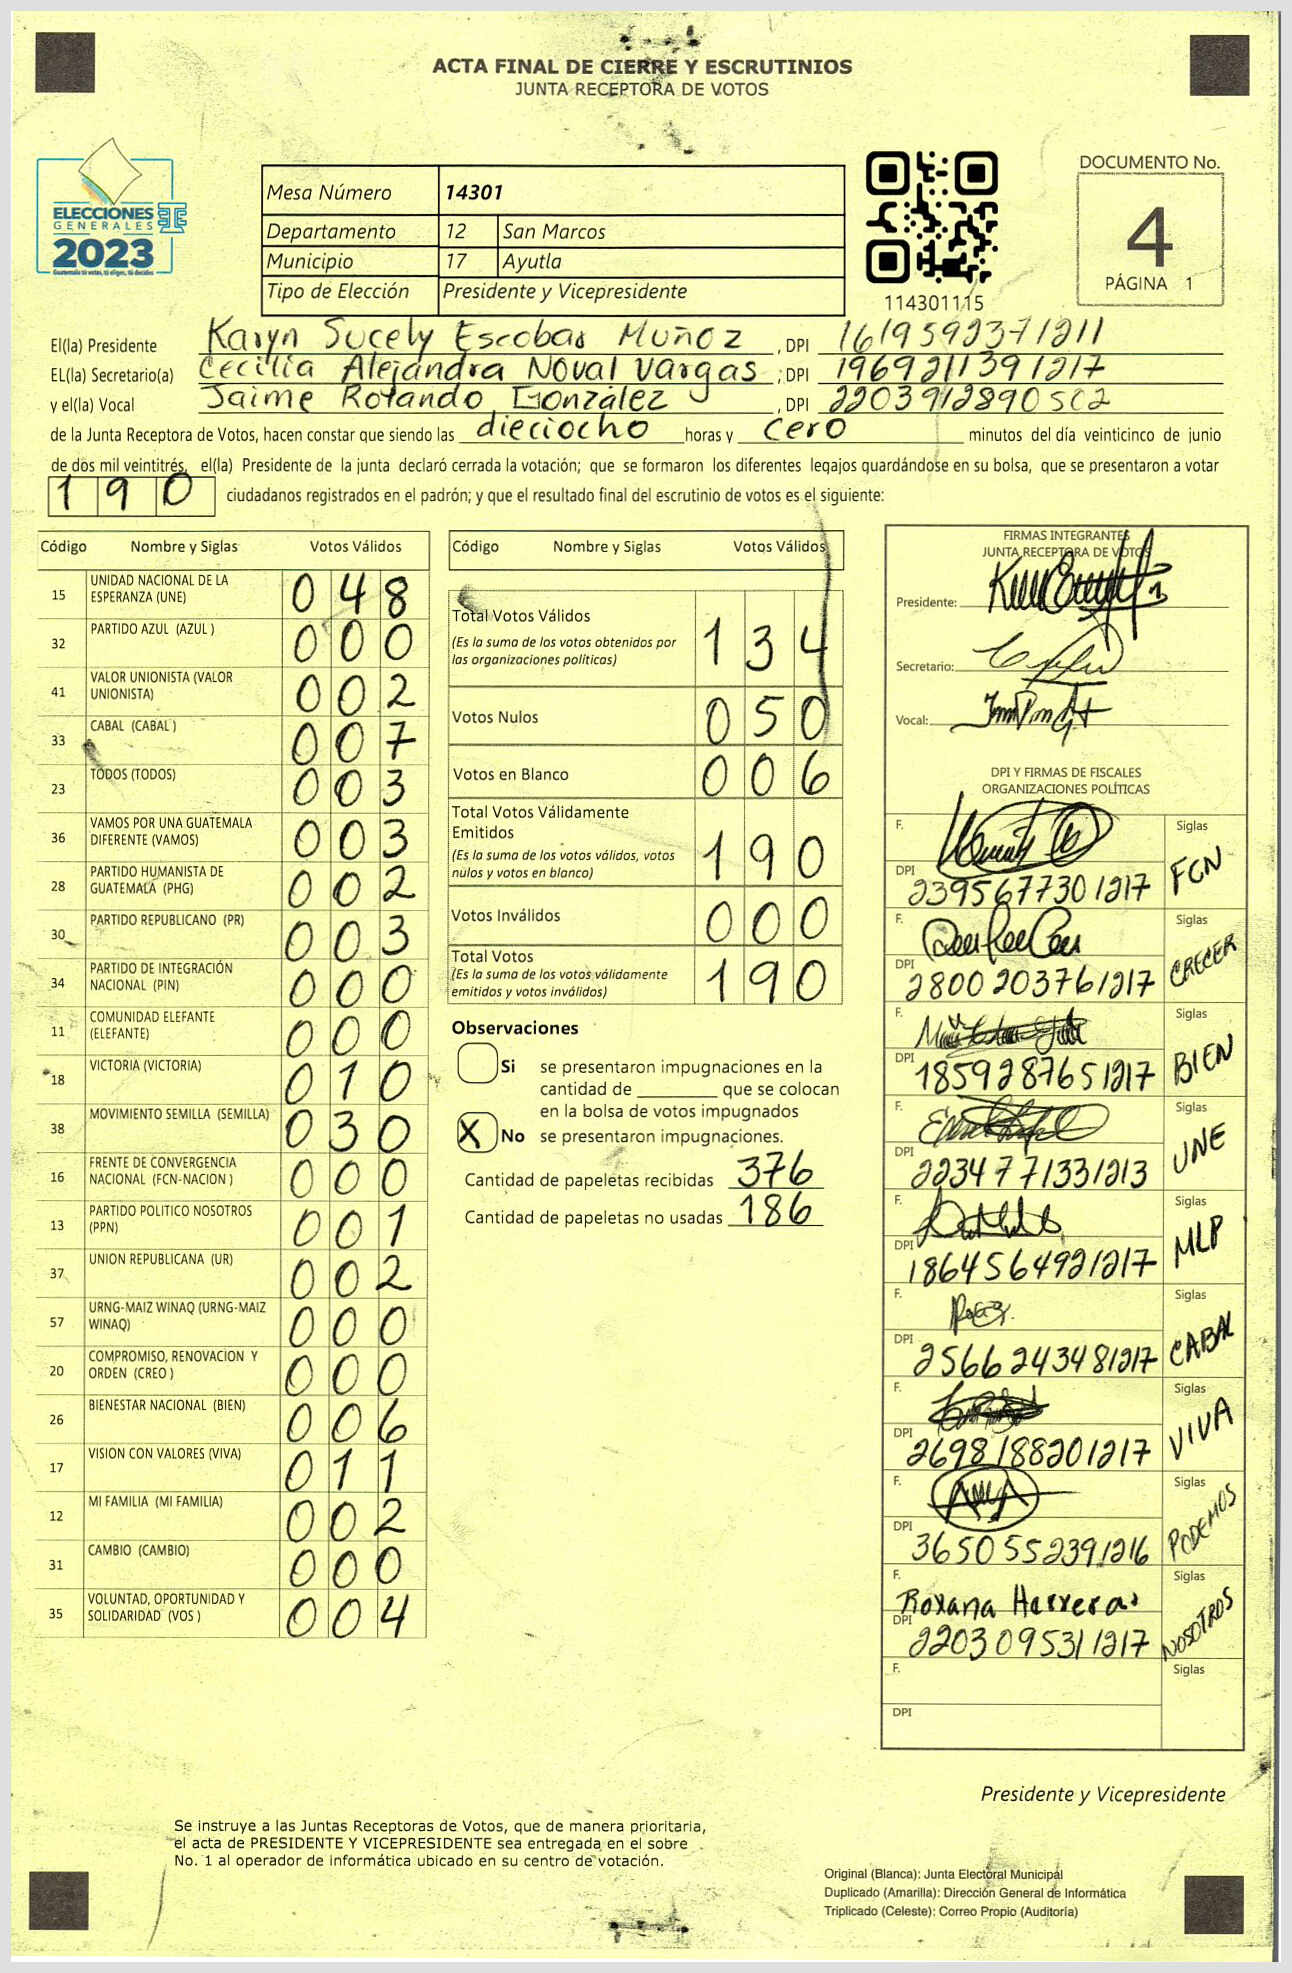 ACTA FINAL DE CIERRE Y ESCRUTINIOS
JUNTA RECEPTORA DE VOTOS
ELECCIONES
GENERALES
2023
Guatemala tú votas, tú eliges, tú decides
Mesa Número 14301
Departamento 12 San Marcos
Municipio 17 Ayutla
Tipo de Elección Presidente y Vicepresidente
114301115
DOCUMENTO No.
4
PÁGINA 1
El(la) Presidente Karyn Sucely Escobar Muñoz , DPI 1619592371211
EL(la) Secretario(a) Cecilia Alejandra Noval Vargas , DPI 1969211391217
y el(la) Vocal Jaime Rolando González , DPI
de la Junta Receptora de Votos, hacen constar que siendo las dieciocho horas y cero minutos del día veinticinco de junio
de dos mil veintitrés, el(la) Presidente de la junta declaró cerrada la votación; que se formaron los diferentes legajos guardándose en su bolsa, que se presentaron a votar
190 ciudadanos registrados en el padrón; y que el resultado final del escrutinio de votos es el siguiente:
Código Nombre y Siglas Votos Válidos
15 UNIDAD NACIONAL DE LA ESPERANZA (UNE) 048
32 PARTIDO AZUL (AZUL ) 000
41 VALOR UNIONISTA (VALOR UNIONISTA) 002
33 CABAL (CABAL ) 007
23 TODOS (TODOS) 003
36 VAMOS POR UNA GUATEMALA DIFERENTE (VAMOS) 003
28 PARTIDO HUMANISTA DE GUATEMALA (PHG) 002
30 PARTIDO REPUBLICANO (PR) 003
34 PARTIDO DE INTEGRACIÓN NACIONAL (PIN) 000
11 COMUNIDAD ELEFANTE (ELEFANTE) 000
18 VICTORIA (VICTORIA) 010
38 MOVIMIENTO SEMILLA (SEMILLA) 030
16 FRENTE DE CONVERGENCIA NACIONAL (FCN-NACION ) 000
13 PARTIDO POLITICO NOSOTROS (PPN) 001
37 UNION REPUBLICANA (UR) 002
57 URNG-MAIZ WINAQ (URNG-MAIZ WINAQ) 000
20 COMPROMISO, RENOVACION Y ORDEN (CREO ) 000
26 BIENESTAR NACIONAL (BIEN) 006
17 VISION CON VALORES (VIVA) 011
12 MI FAMILIA (MI FAMILIA) 002
31 CAMBIO (CAMBIO) 000
35 VOLUNTAD, OPORTUNIDAD Y SOLIDARIDAD (VOS ) 004
Código Nombre y Siglas Votos Válidos
Total Votos Válidos 134
(Es la suma de los votos obtenidos por
las organizaciones políticas)
Votos Nulos 050
Votos en Blanco 006
Total Votos Válidamente
Emitidos 190
(Es la suma de los votos válidos, votos
nulos y votos en blanco)
Votos Inválidos 000
Total Votos 190
(Es la suma de los votos válidamente
emitidos y votos inválidos)
Observaciones
Si se presentaron impugnaciones en la
cantidad de ________ que se colocan
en la bolsa de votos impugnados
X No se presentaron impugnaciones.
Cantidad de papeletas recibidas 376
Cantidad de papeletas no usadas 186
FIRMAS INTEGRANTES
JUNTA RECEPTORA DE VOTOS
Presidente:
Secretario:
Vocal:
DPI Y FIRMAS DE FISCALES
ORGANIZACIONES POLÍTICAS
F. Siglas FCN
DPI 2395677301217
F. Siglas CRECER
DPI 2800203761217
F. Siglas BIEN
DPI 1859287651217
F. Siglas UNE
DPI 2234771331213
F. Siglas MLP
DPI 1864564921217
F. Siglas CABAL
DPI 2566243481217
F. Siglas VIVA
DPI 2698188201217
F. Siglas PODEMOS
DPI 3650552391216
F. Roxana Herrera Siglas NOSOTROS
DPI 2203095311217
F. Siglas
DPI
Presidente y Vicepresidente
Se instruye a las Juntas Receptoras de Votos, que de manera prioritaria,
el acta de PRESIDENTE Y VICEPRESIDENTE sea entregada en el sobre
No. 1 al operador de informática ubicado en su centro de votación.
Original (Blanca): Junta Electoral Municipal
Duplicado (Amarilla): Dirección General de Informática
Triplicado (Celeste): Correo Propio (Auditoría)